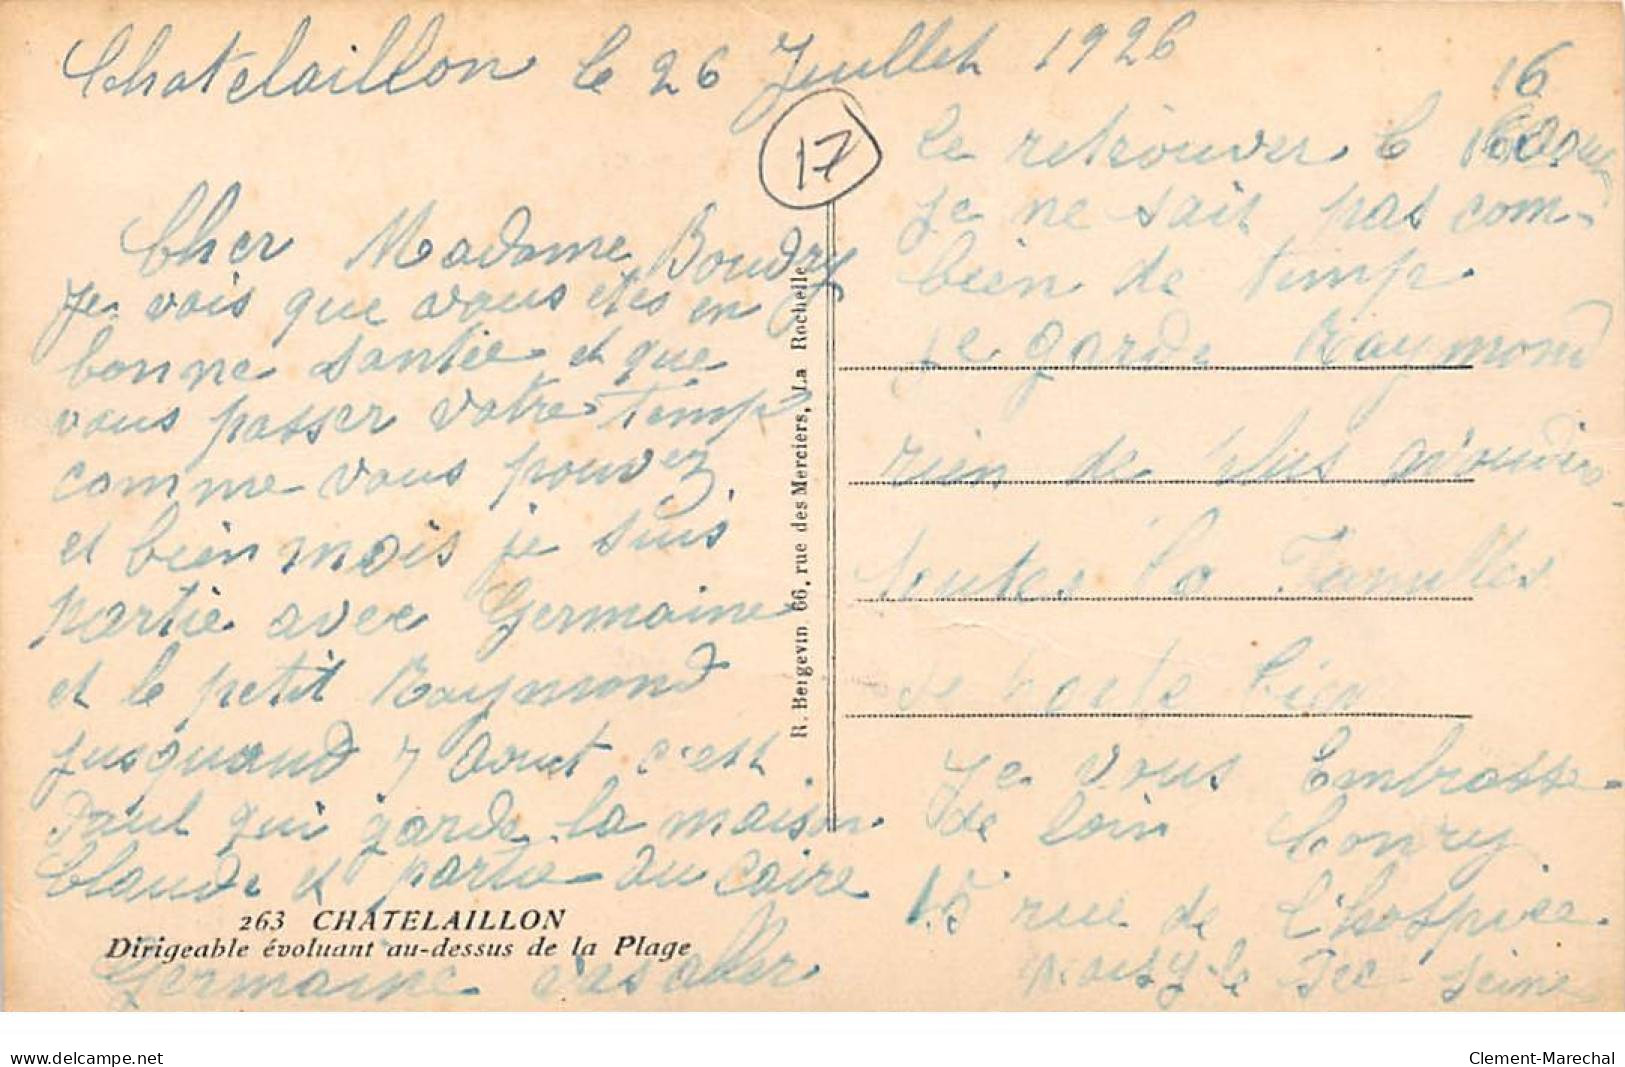 Chatelaillon le 26 Juillet 1926
17
Cher Madame Boudry
Je vois que vous etes en
bonne santée et que
vous passer votre temp
comme vous pouvez
et bien mois je suis
partie avec Germaine
et le petit Raymond
jusquand 7 Aout c'est
Paul qui garde la maison
Claude et partie au Caire
263 CHATELAILLON
Dirigeable évoluant au-dessus de la Plage
Germaine vas aller
R. Bergevin 66, rue des Merciers, La Rochelle
16
le retrouver le
je ne sait pas com-
bien de temp
je garde Raymond
rien de plus
toutes la Familles
se porte bien
Je vous Embrasse
de loin Conry
15 rue de L'hospice
Noisy le Sec Seine
www.delcampe.net
Clement-Marechal